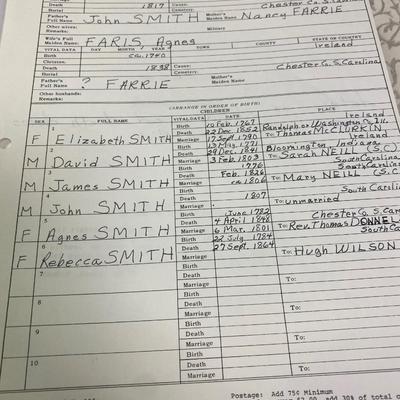 Death 1817 Cause: Chester Co. S. Carolina
Burial
Father's Full Name John SMITH Mother's Maiden Name Nancy FARRIE
Other wives:
Remarks: Military
Wife's Full Maiden Name FARIS Agnes
VITAL DATA DAY MONTH YEAR TOWN COUNTY STATE OR COUNTRY
Birth ca. 1740 Ireland
Christen.
Death 1838 Cause: Chester Co. S. Carolina
Burial
Father's Full Name ? FARRIE Mother's Maiden Name
Other husbands:
Remarks:
(ARRANGE IN ORDER OF BIRTH)
CHILDREN
SEX FULL NAME VITAL DATA DATE PLACE
F Elizabeth SMITH Birth 10 Feb. 1767 Ireland
Death 22 Dec. 1852 Randolph or Washington Co. Ill.
Marriage 17 Sept. 1790 To: Thomas McCLURKIN
M David SMITH Birth 13 May. 1771 Ireland
Death 29 Dec. 1844 Bloomington Indiana
Marriage 3 Feb. 1803 To: Sarah NEILL (S.C.)
M James SMITH Birth 1776 South Carolina
Death Feb. 1826
Marriage ca. 1806 To: Mary NEILL (S.C.
M John SMITH Birth South Carolina
Death 1807
Marriage To: unmarried
5
F Agnes SMITH Birth 1 June 1782 South Carolina
Death 4 April 1848 Chester Co. S. Car
Marriage 6 Mar. 1801 To: Rev. Thomas DONNEL
6
F Rebecca SMITH Birth 22 July 1784 South Ca
Death 27 Sept. 1864
Marriage To: Hugh WILSON
7
Birth
Death
Marriage To:
8
Birth
Death
Marriage To:
9
Birth
Death
Marriage To:
10
Birth
Death
Marriage To:
Postage: Add 75¢ Minimum
add 30% of total o